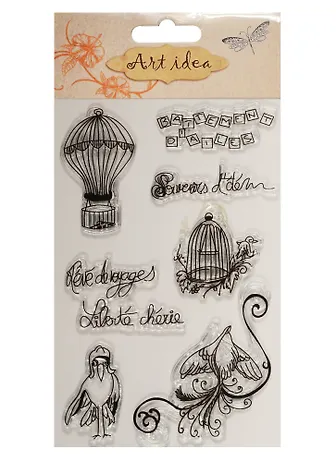 Art idea
BATTEMENT
D'AILES
Rêve de voyages
Liberté chérie